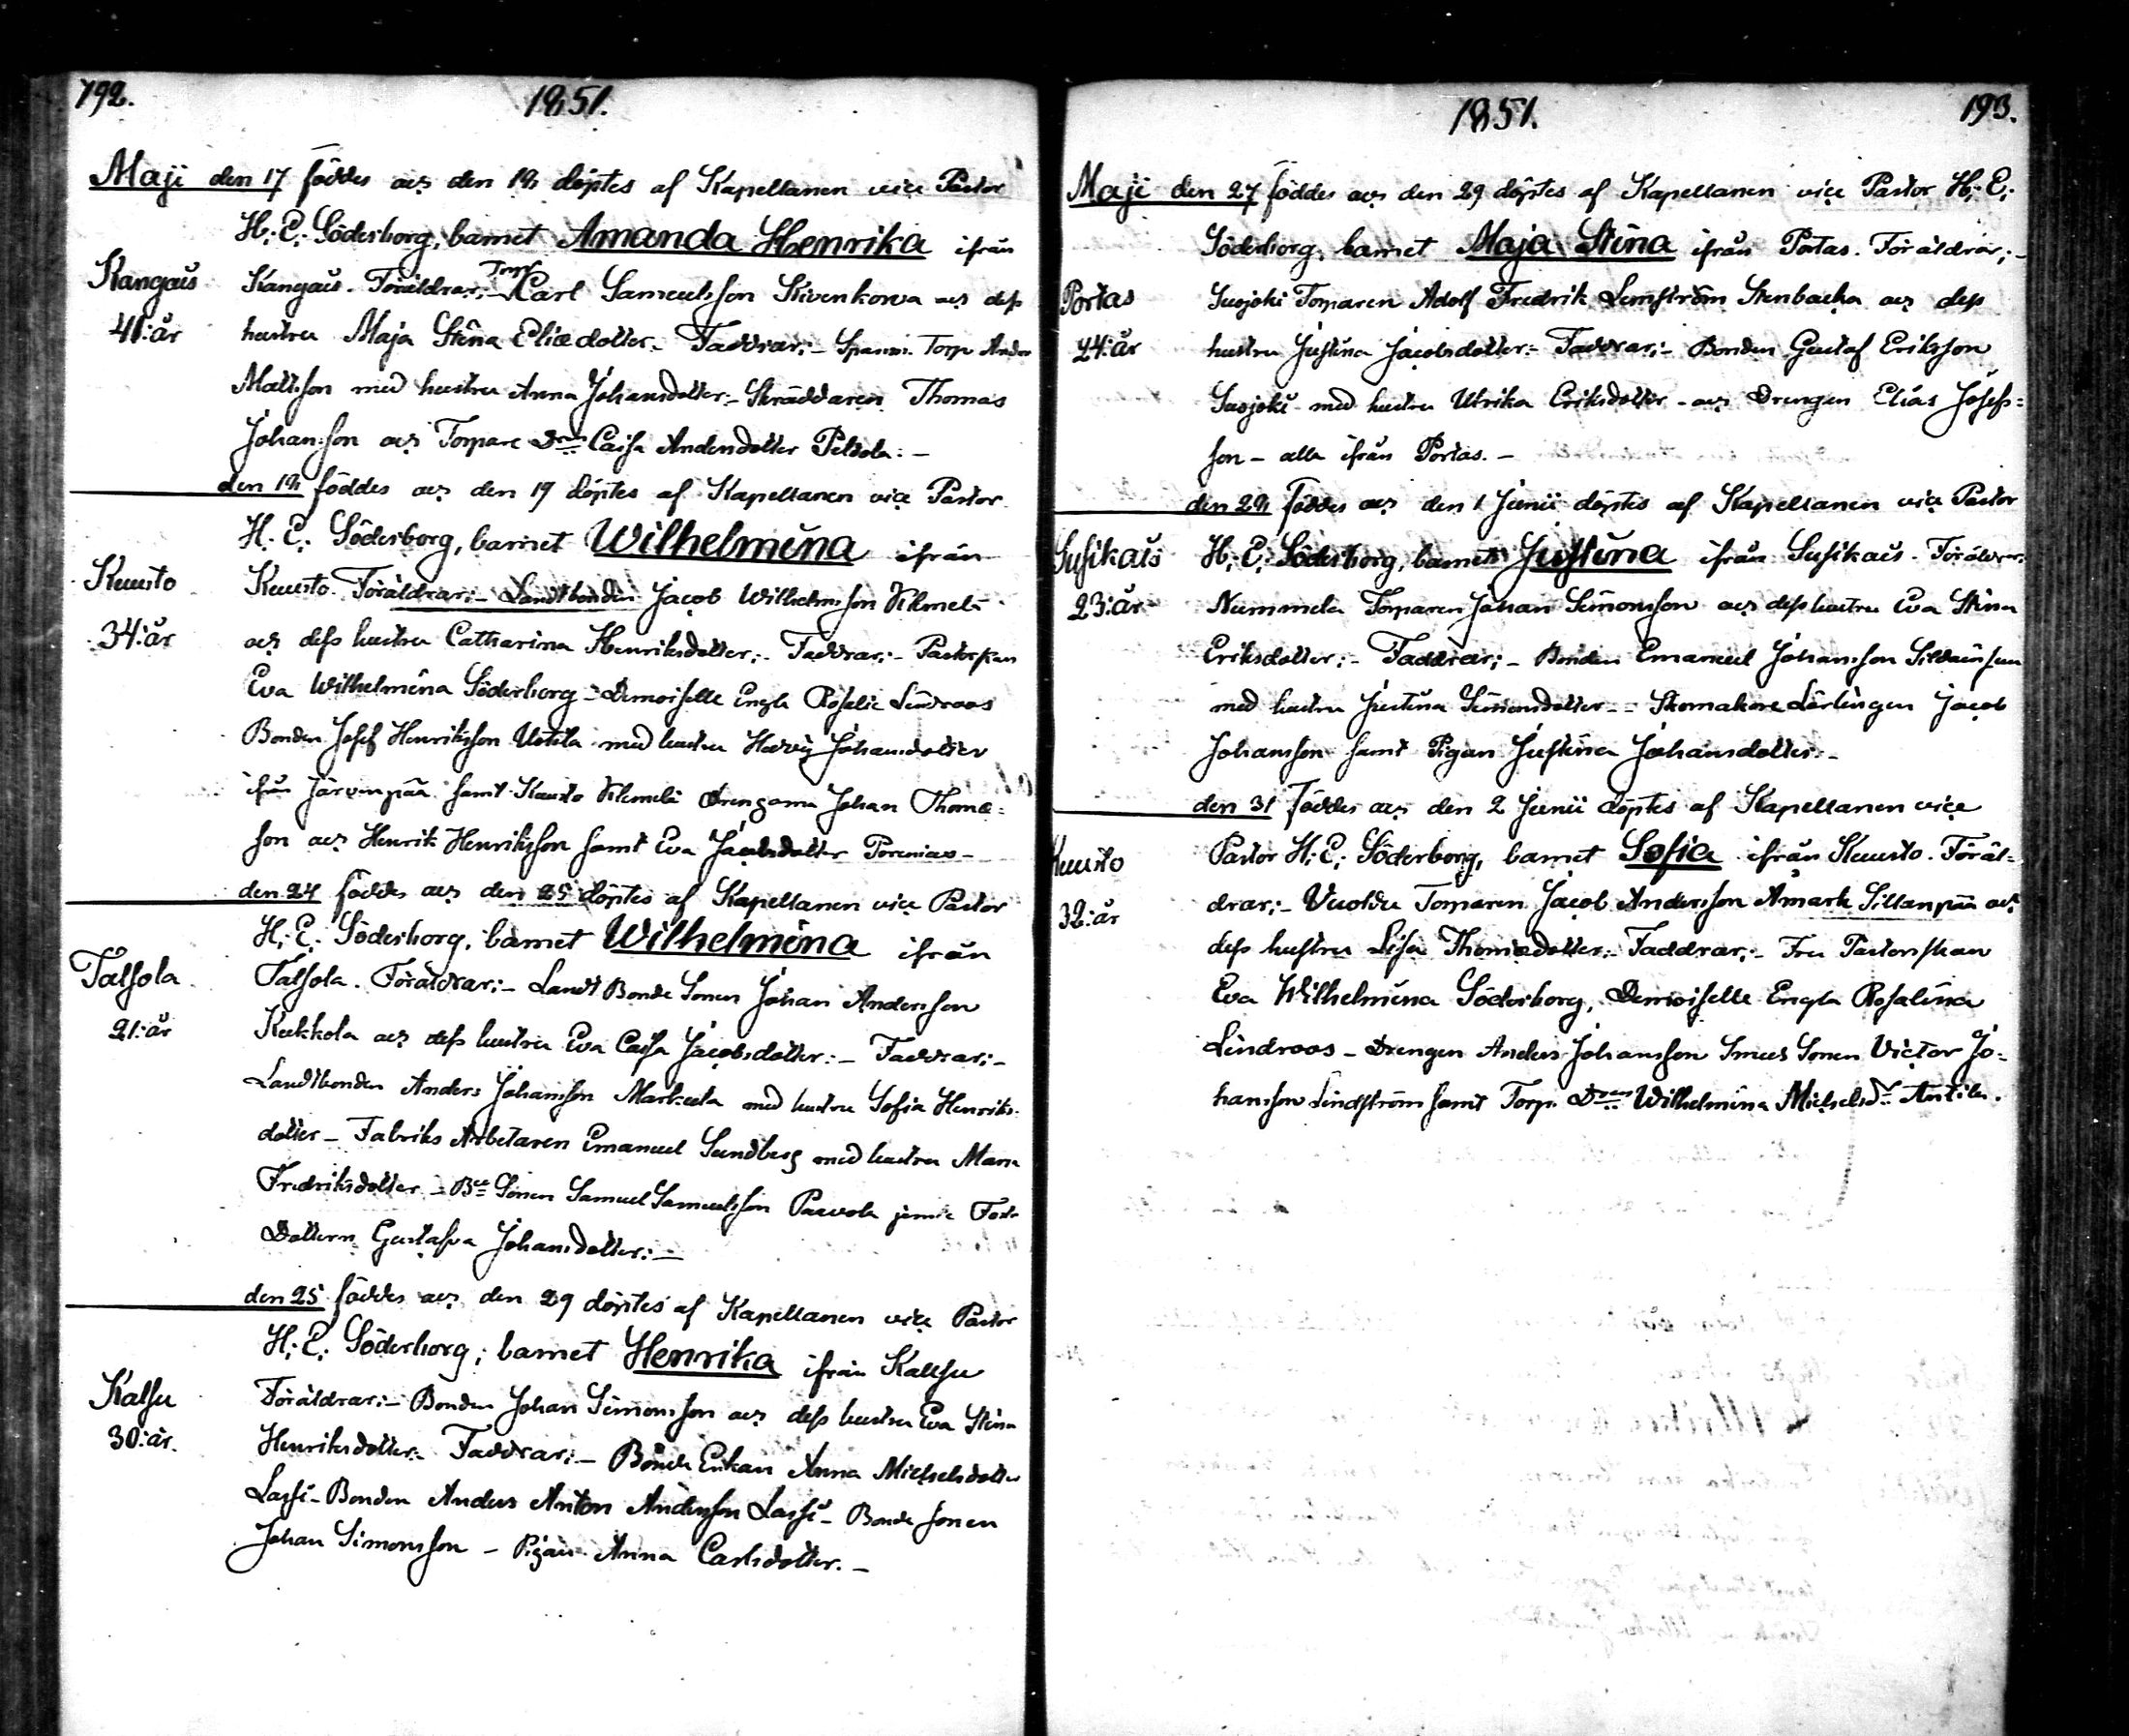 192.
1851.
Maji den 17 föddes och den 18 döptes af Kapellanen vice Pastor
H: E: Söderborg, barnet Amanda Henrika ifrån
Kangais Kangais. Föräldrar:- Torp. Carl Samuelsson Kivenkorva och dess
41: år hustru Maja Stina Eliædotter.- Faddrar:- Torp Anders
Mattsson med hustru Anna Johansdotter.- Skräddaren Thomas
Johansson och Torpare Dren Caisa Andersdotter Peltola:-
den 18 föddes och den 19 döptes af Kapellanen vice Pastor
H: E: Söderborg, barnet Wilhelmina ifrån
Kuusto Kuusto. Föräldrar:- Landtbonden Jacob Wilhelmsson
34: år och dess hustru Catharina Henriksdotter:- Faddrar:- Pastorskan
Eva Wilhelmina Söderborg - Demoiselle Engla Rosalie Lindroos
Bonden Josef Henriksson Uotila med hustru Hedvig Johansdotter
ifrån Järvenpää samt Kuusto Drengarna Johan Thomas=
son och Henrik Henriksson samt Eva Jacobsdotter
den 24 föddes och den 25 döptes af Kapellanen vice Pastor
H: E: Söderborg, barnet Wilhelmina ifrån
Talsola Talsola. Föräldrar:- Landt Bonde Sonen Johan Andersson
21: år Kukkola och dess hustru Eva Caisa Jacobsdotter:- Faddrar:-
Landtbonden Anders Johansson Markula med hustru Sofia Henriks-
dotter - Fabriks Arbetaren Emanuel Sundberg med hustru Maria
Fredriksdotter - Bde Sonen Samuel Samuelsson Paavola jemte
Dottern Gustafva Johansdotter:-
den 25 föddes och den 29 döptes af Kapellanen vice Pastor
H: E: Söderborg; barnet Henrika ifrån Kallsu
Kalsu Föräldrar:- Bonden Johan Simonsson och dess hustru Eva Stina
30: år. Henriksdotter:- Faddrar:- Bonde Enkan Anna Michelsdotter
Lassi - Bonden Anders Anton Andersson Lassi - Bonde sonen
Johan Simonsson - Pigan Anna Carlsdotter.-
1851.
193.
Maji den 27 föddes och den 29 döptes af Kapellanen vice Pastor H: E:
Söderborg, barnet Maja Stina ifrån Portas. Föräldrar:-
Portas Susjoki Torparen Adolf Fredrik Lemström Stenbacka och dess
24: år hustru Justina Jacobsdotter:- Faddrar:- Bonden Gustaf Eriksson
Susjoki med hustru Ulrika Eriksdotter - och Drengen Elias Josefs=
son - alla ifrån Portas.-
den 28 föddes och den 1 Junii döptes af Kapellanen vice Pastor
Susikais H: E: Söderborg, barnet Justina ifrån Susikais. Föräldrar:
23: år Nummela Torparen Johan Simonsson och dess hustru Eva Stina
Eriksdotter:- Faddrar:- Bonden Emanuel Johansson
med hustru Justina Simonsdotter - Skomakare Lärlingen Jacob
Johansson samt Pigan Justina Johansdotter:-
den 31 föddes och den 2 Junii döptes af Kapellanen vice
Kuusto Pastor H: E: Söderborg, barnet Sofia ifrån Kuusto. Föräl=
32: år drar:- Torparen Jacob Andersson Amark Sillanpää och
dess hustru Lisa Thomædotter:- Faddrar:- Fru Pastorskan
Eva Wilhelmina Söderborg, Demoiselle Engla Rosalina
Lindroos - Drengen Anders Johansson Smeds Sonen Victor Jo=
hansson Lindström samt Torp. Dren Wilhelmina Michelsdr Antila.